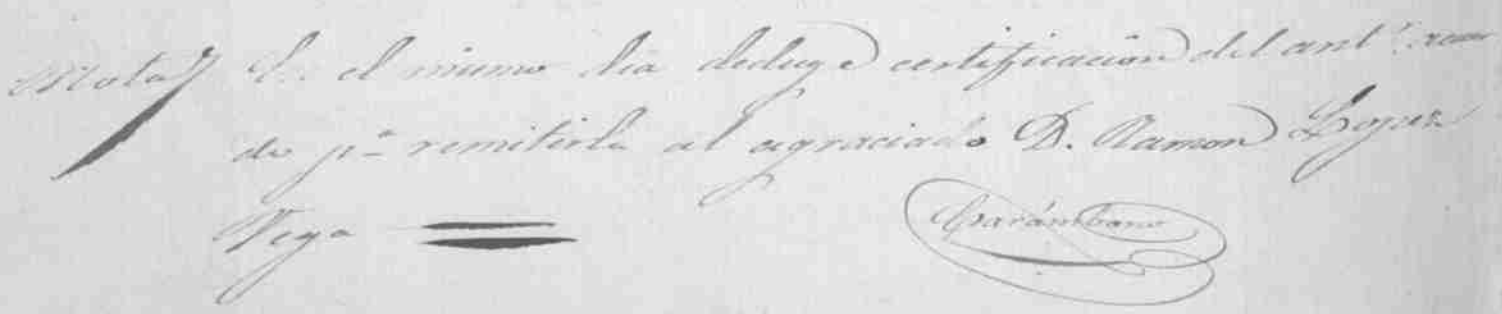 Nota En el mismo dia deduge certificacion del antr. acuer
do pa. remitirla al agraciado D. Ramon Lopez
Vega